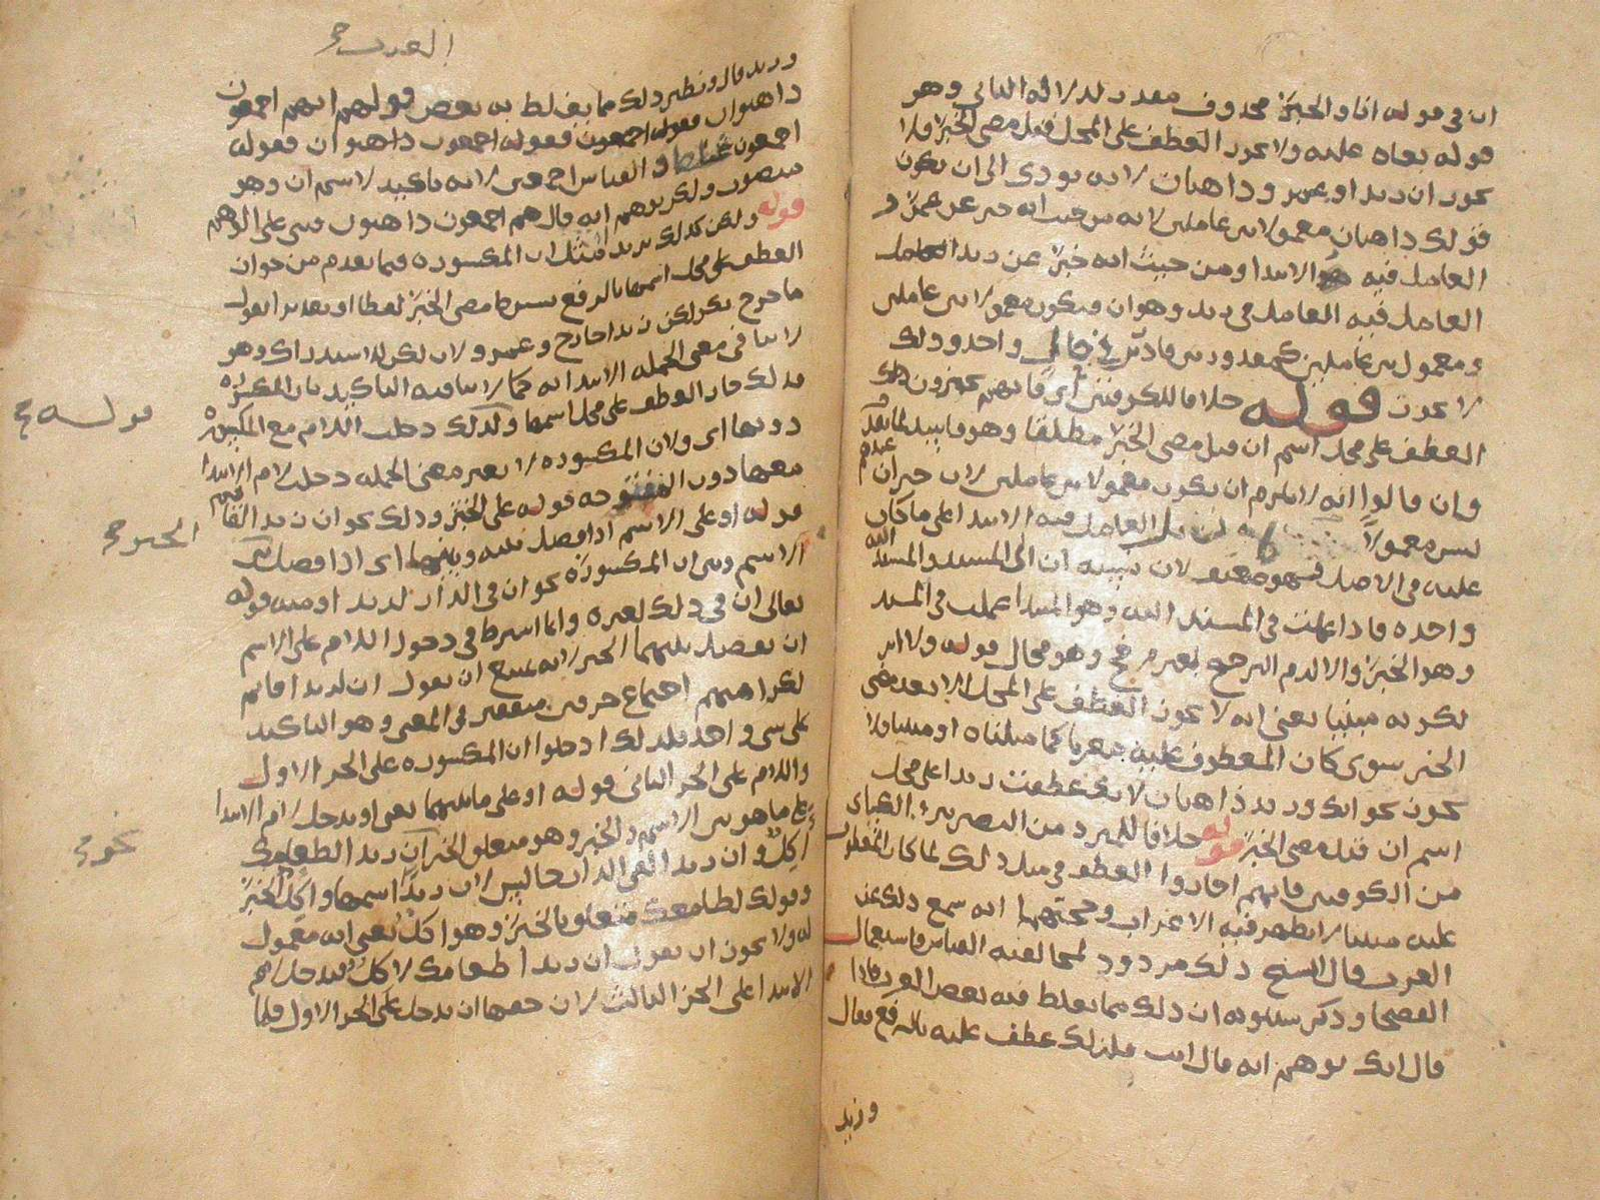 ان في قوله انا والخبر محذوف مقدر لدلالة الثاني وهو
قوله بغاه عليه ولا يجوز العطف على المحل قبل مضي الخبر فلا
يجوز ان زيدا وعمرو ذاهبان لانه يودي الى ان يكون
قولك ذاهبان معمولا لعاملين لانه من حيث انه خبر عن عمرو
العامل فيه الابتدا ومن حيث انه خبر عن زيدا العامل
العامل فيه العامل في زيد وهو ان فيكون معمولا لعاملين
ومعمول بين عاملين كمقدور بين قادرين في حال واحد وذلك
لا يجوز قوله خلافا للكوفيين اي فانهم يجيزون ذلك
العطف على محل اسم ان قبل مضي الخبر مطلقا وهو فاسد لما تقدم
وان قالوا انه لا يلزم ان يكون معمولا لعاملين لان خبر ان
ليس معمولا بل العامل فيه الابتدا على ما كان
عليه في الاصل فهو ضعيف لان نسبة ان الى المسند والمسند اليه
واحدة فاذا عملت في المسند اليه وهو المبتدا عملت في المسند
وهو الخبر والا لزم الترجيح بغير مرجح وهو محال قوله ولا اثر
لكونه مبنيا يعني انه لا يجوز العطف على المحل الا بعد مضي
الخبر سوى كان المعطوف عليه معربا كما مثلناه او مبنيا فلا
يجوز نحو انك وزيد ذاهبان لانك عطفت زيدا على محل
اسم ان قبل مضي الخبر قوله خلافا للمبرد من البصريين والكسائي
من الكوفيين فانهم اجازوا العطف في مثل ذلك لما كان المعطوف
عليه مبنيا لا يظهر فيه الاعراب وحجتهما انه سمع ذلك عن
العرب قال الشيخ ذلك مردود لمخالفته القياس واستعمال
الفصحا وذكر سيبويه ان ذلك مما يغلط فيه بعض العرب فاذا
قال انك توهم انه قال انت فلذلك عطف عليه بالرفع فقال
وزيد
العرب
وزيد قال ونظير ذلك مما يغلط به بعض قولهم انهم اجمعون
ذاهبون فقوله اجمعون فقوله اجمعون ذاهبون فقوله
اجمعون والقياس اجمعين لانه تاكيد لاسم ان وهو
منصوب ولكن توهم انه قال هم اجمعون ذاهبون وبنى على الوهم
قوله ولكن كذلك يريد مثل ان المكسورة فيما تقدم من جواز
العطف على محل اسمها بالرفع بشرط مضي الخبر لفظا او تقديرا تقول
ما خرج بكر لكن زيدا خارج وعمرو لان لكن للاستدراك وهو
لا ينافي معنى الجملة الابتدائية كما لا ينافيه التاكيد بان المكسورة
فلذلك جاز العطف على محل اسمها ولذلك دخلت اللام مع المكسورة
دونها اي ولان المكسورة لا تغير معنى الجملة دخلت لام الابتدا
معها دون المفتوحة قوله على الخبر وذلك نحو ان زيدا لقائم
قوله او على الاسم اذا فصل بينه وبينها اي اذا فصل بين
الاسم وبين ان المكسورة نحو ان في الدار لزيدا ومنه قوله
تعالى ان في ذلك لعبرة وانما اشترط في دخول اللام على الاسم
ان يفصل بينهما الخبر لانه يمتنع ان تقول ان لزيدا قائم
لكراهيتهم اجتماع حرفين متفقين في المعنى وهو التاكيد
على شي واحد فلذلك ادخلوا ان المكسورة على الجزء الاول
واللام على الجزء الثاني قوله او على ما بينهما يعني او تدخل لام الابتدا
على ما هو بين الاسم والخبر وهو متعلق الخبر ان زيدا لطعامك
آكل وان زيدا لفي الدار جالس لان زيدا اسمها وآكل الخبر
وقولك لطعامك متعلق بالخبر وهو آكل يعني انه معمول
له ولا يجوز ان تقول ان زيدا طعامك لآكل فتدخل لام
الابتدا على الجزء الثالث لان حقها ان تدخل على الجزء الاول فلما
قوله
الخبر
نحو